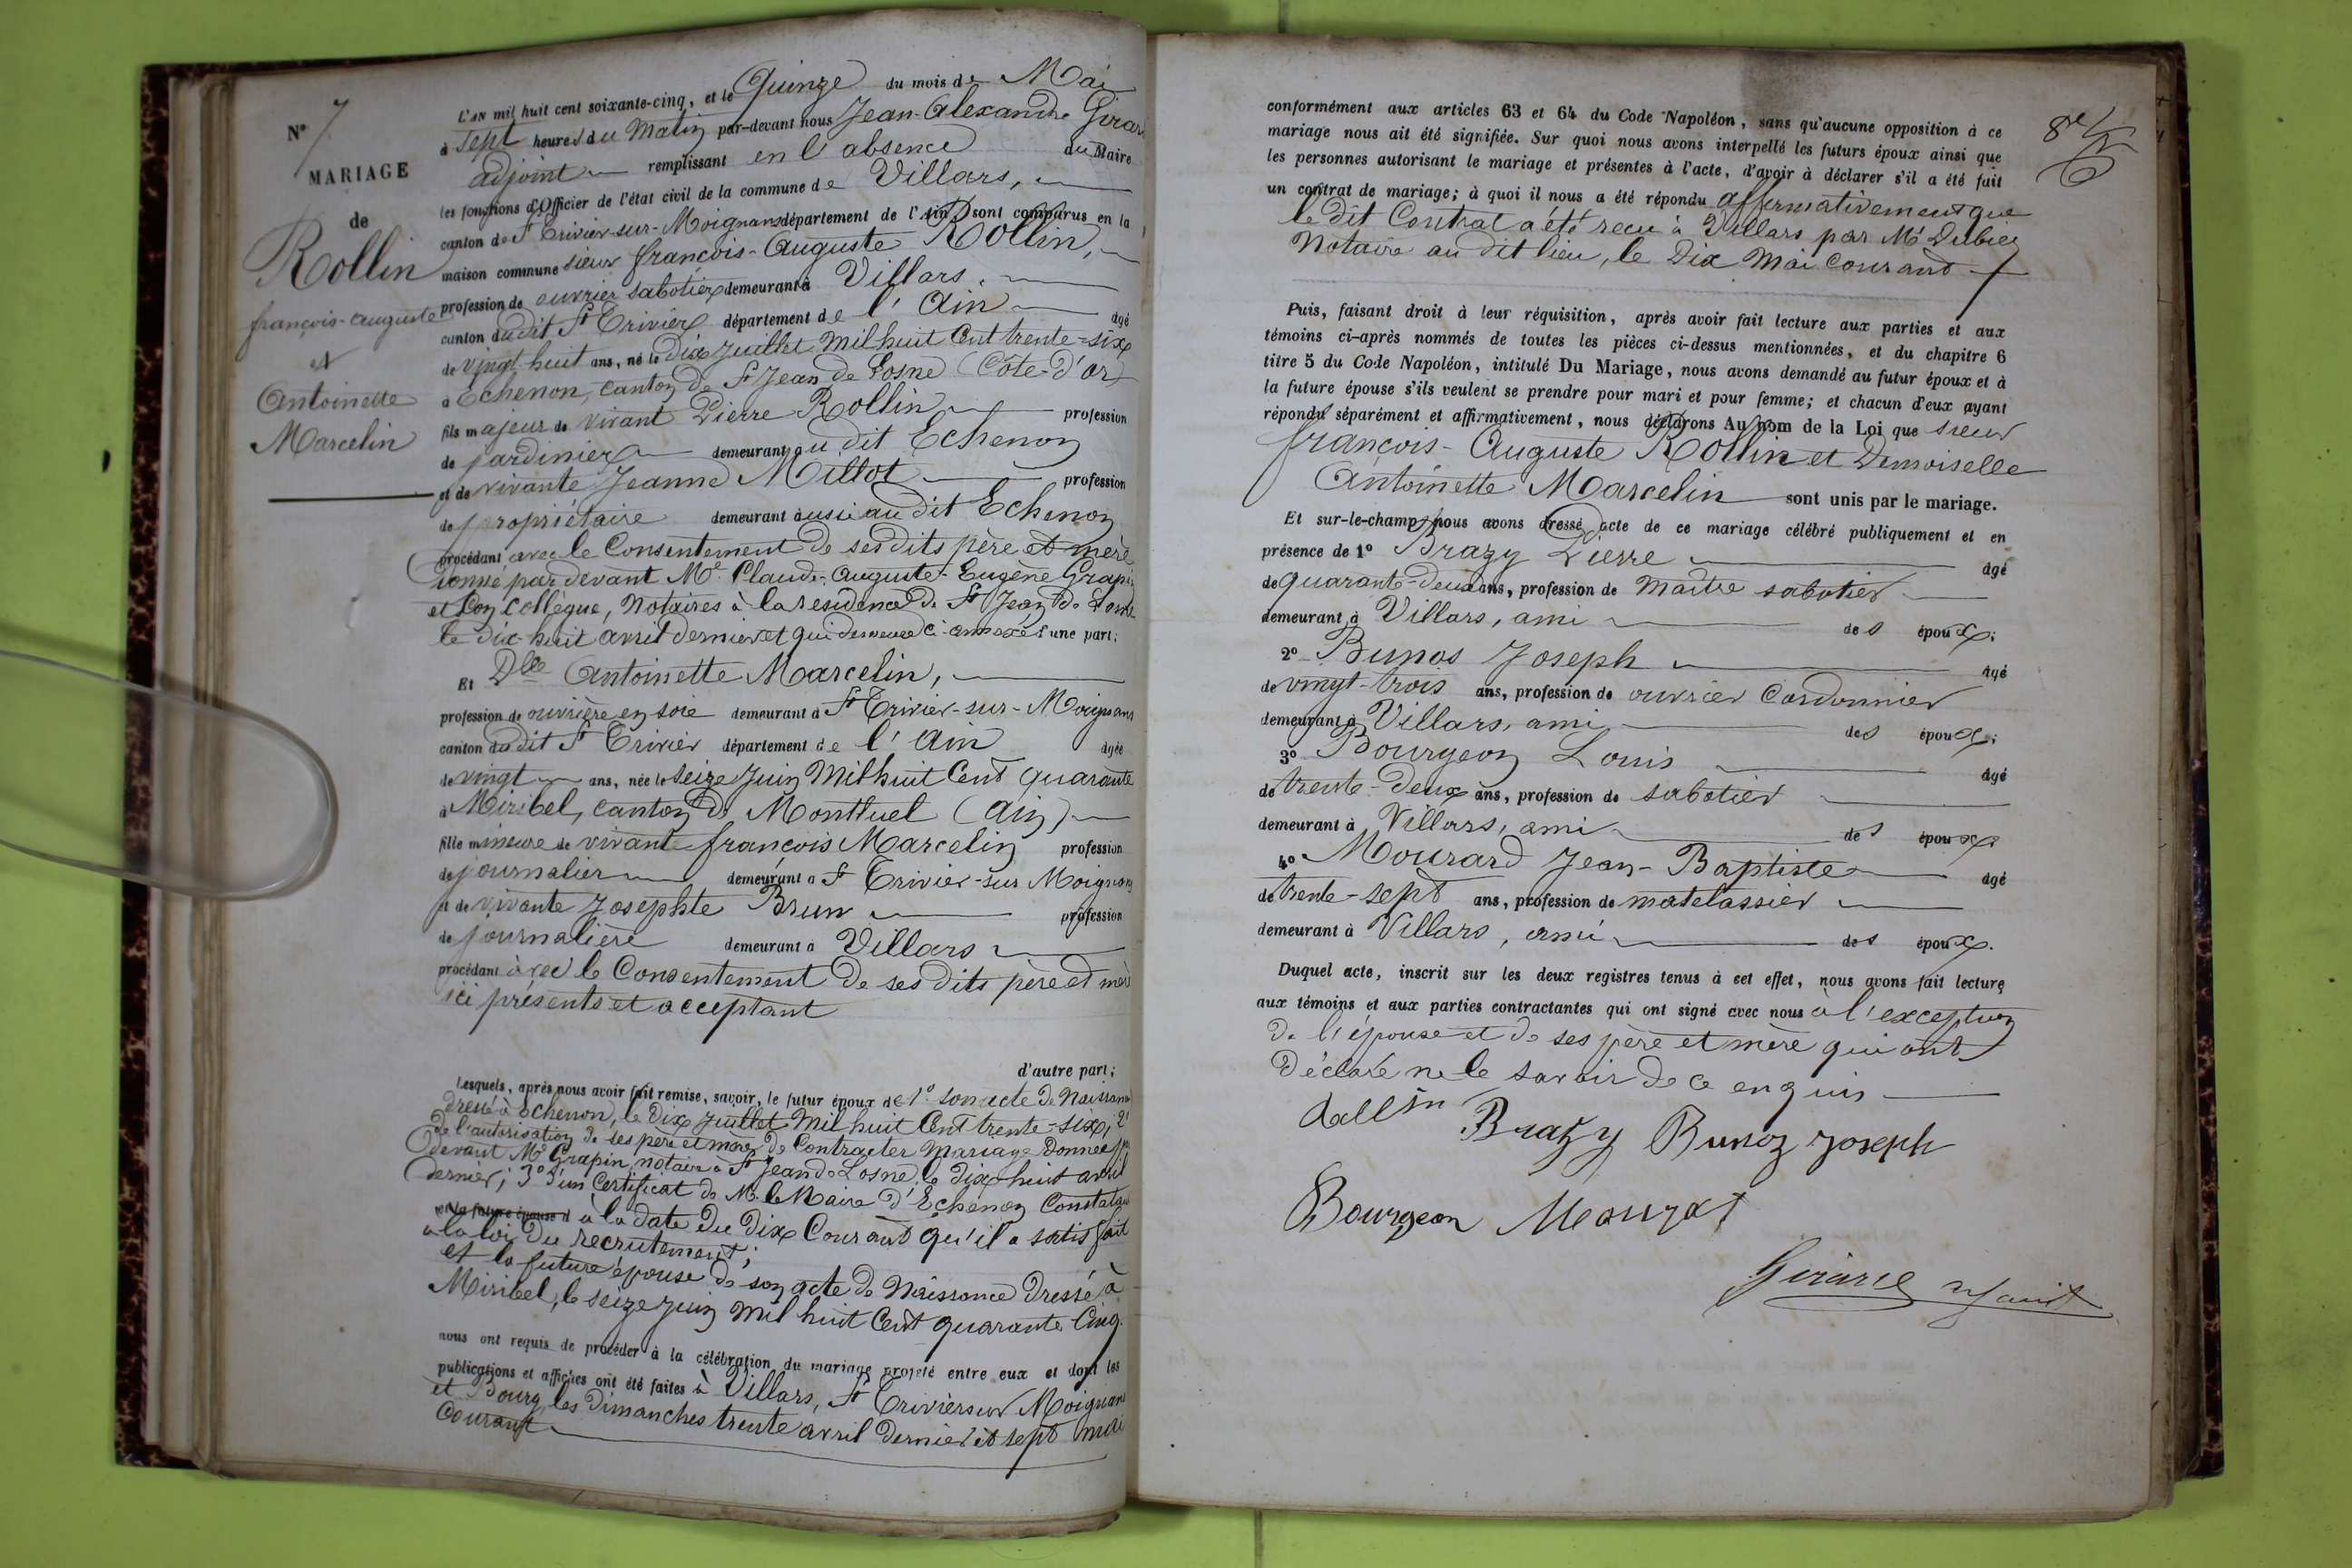 N° 7
MARIAGE
de
Rollin
françois-auguste
et
Antoinette
Marcelin
L'AN mil huit cent soixante-cinq, et le Quinze du mois de Mai
à sept heures du Matin par-devant nous Jean-Alexandre Girar
adjoint remplissant en l'absence du Maire
les fonctions d'Officier de l'état civil de la commune de Villars,
canton de St Trivier-sur-Moignans département de l'Ain sont comparus en la
maison commune sieur françois-Auguste Rollin,
profession de ouvrier sabotier demeurant à Villars,
canton du dit St Trivier département de l'Ain âgé
de vingt huit ans, né le Dix Juillet Mil huit Cent trente-six
à Echenon, canton de St Jean de Losne (Côte-d'or)
fils majeur de vivant Pierre Rollin profession
de jardinier demeurant au dit Echenon
et de vivante Jeanne Millot profession
de propriétaire demeurant aussi au dit Echenon
procédant avec le Consentement de ses dits père et mère
donné par devant Me Claude-Auguste-Eugène Grapin
et son collègue, Notaires à la résidence de St Jean de Losne
le dix-huit avril dernier et qui demeure ci-annexé d'une part;
Et Dlle Antoinette Marcelin,
profession de ouvrière en soie demeurant à St Trivier-sur-Moignans
canton du dit St Trivier département de l'Ain âgée
de vingt ans, née le seize Juin Mil huit Cent quarante
à Miribel, canton de Montluel (Ain)
fille mineure de vivant françois Marcelin profession
de journalier demeurant à St Trivier-sur Moignans
et de vivante Josephte Brun profession
de journalière demeurant à Villars
procédant avec le Consentement de ses dits père et mère
ici présents et acceptant
d'autre part;
Lesquels, après nous avoir fait remise, savoir, le futur époux de 1° son acte de Naissance
dressé à Echenon, le Dix Juillet Mil huit Cent trente-six; 2°
de l'autorisation de ses père et mère de Contracter Mariage Donnée
devant Me Grapin notaire à St Jean de Losne le Dix-huit avril
dernier; 3° d'un Certificat de Mr le Maire d'Echenon Constatant
et la future épouse d à la date Du Dix Courant qu'il a satisfait
à la loi Du recrutement;
et la future épouse de son acte de Naissance Dressé à
Miribel, le seize Juin Mil huit Cent quarante Cinq.
nous ont requis de procéder à la célébration du mariage projeté entre eux et dont les
publications et affiches ont été faites à Villars, St Trivier sur Moignans
et Bourg, les Dimanches trente avril dernier et sept mai
Courant
8e
conformément aux articles 63 et 64 du Code Napoléon, sans qu'aucune opposition à ce
mariage nous ait été signifiée. Sur quoi nous avons interpellé les futurs époux ainsi que
les personnes autorisant le mariage et présentes à l'acte, d'avoir à déclarer s'il a été fait
un contrat de mariage; à quoi il nous a été répondu affirmativement que
le dit Contrat a été reçu à Villars par Me Dubien
Notaire au dit lieu, le Dix Mai Courant
Puis, faisant droit à leur réquisition, après avoir fait lecture aux parties et aux
témoins ci-après nommés de toutes les pièces ci-dessus mentionnées, et du chapitre 6
titre 5 du Code Napoléon, intitulé Du Mariage, nous avons demandé au futur époux et à
la future épouse s'ils veulent se prendre pour mari et pour femme; et chacun d'eux ayant
répondu séparément et affirmativement, nous déclarons Au nom de la Loi que sieur
françois-Auguste Rollin et Demoiselle
Antoinette Marcelin sont unis par le mariage.
Et sur-le-champ nous avons dressé acte de ce mariage célébré publiquement et en
présence de 1° Brazy Pierre âgé
de quarante-deux ans, profession de Maître sabotier
demeurant à Villars, ami des époux;
2° Bunos Joseph âgé
de vingt-trois ans, profession de ouvrier Cordonnier
demeurant à Villars, ami des époux;
3° Bourgeon Louis âgé
de trente-deux ans, profession de sabotier
demeurant à Villars, ami des époux
4° Mourard Jean-Baptiste âgé
de trente-sept ans, profession de matelassier
demeurant à Villars, ami des époux.
Duquel acte, inscrit sur les deux registres tenus à cet effet, nous avons fait lecture
aux témoins et aux parties contractantes qui ont signé avec nous à l'exception
de l'épouse et de ses père et mère qui ont
Déclaré ne le savoir de ce enquis
Rollin Brazy Bunoz Joseph
Bourgeon Mourat
Girard